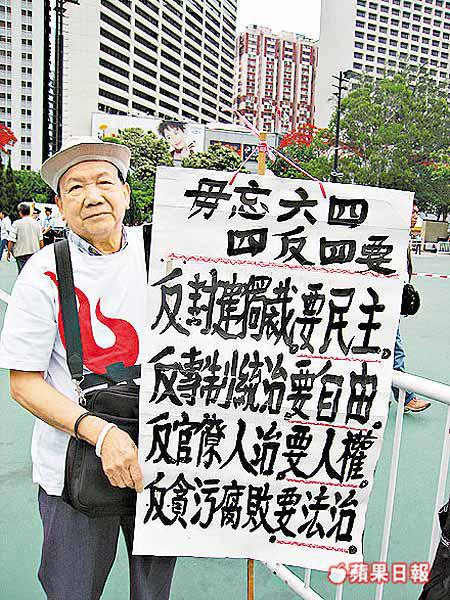 毋忘六四
四反四要
反封建獨裁,要民主。
反專制統治,要自由。
反官僚人治,要人權。
反貪污腐敗,要法治。
蘋果日報